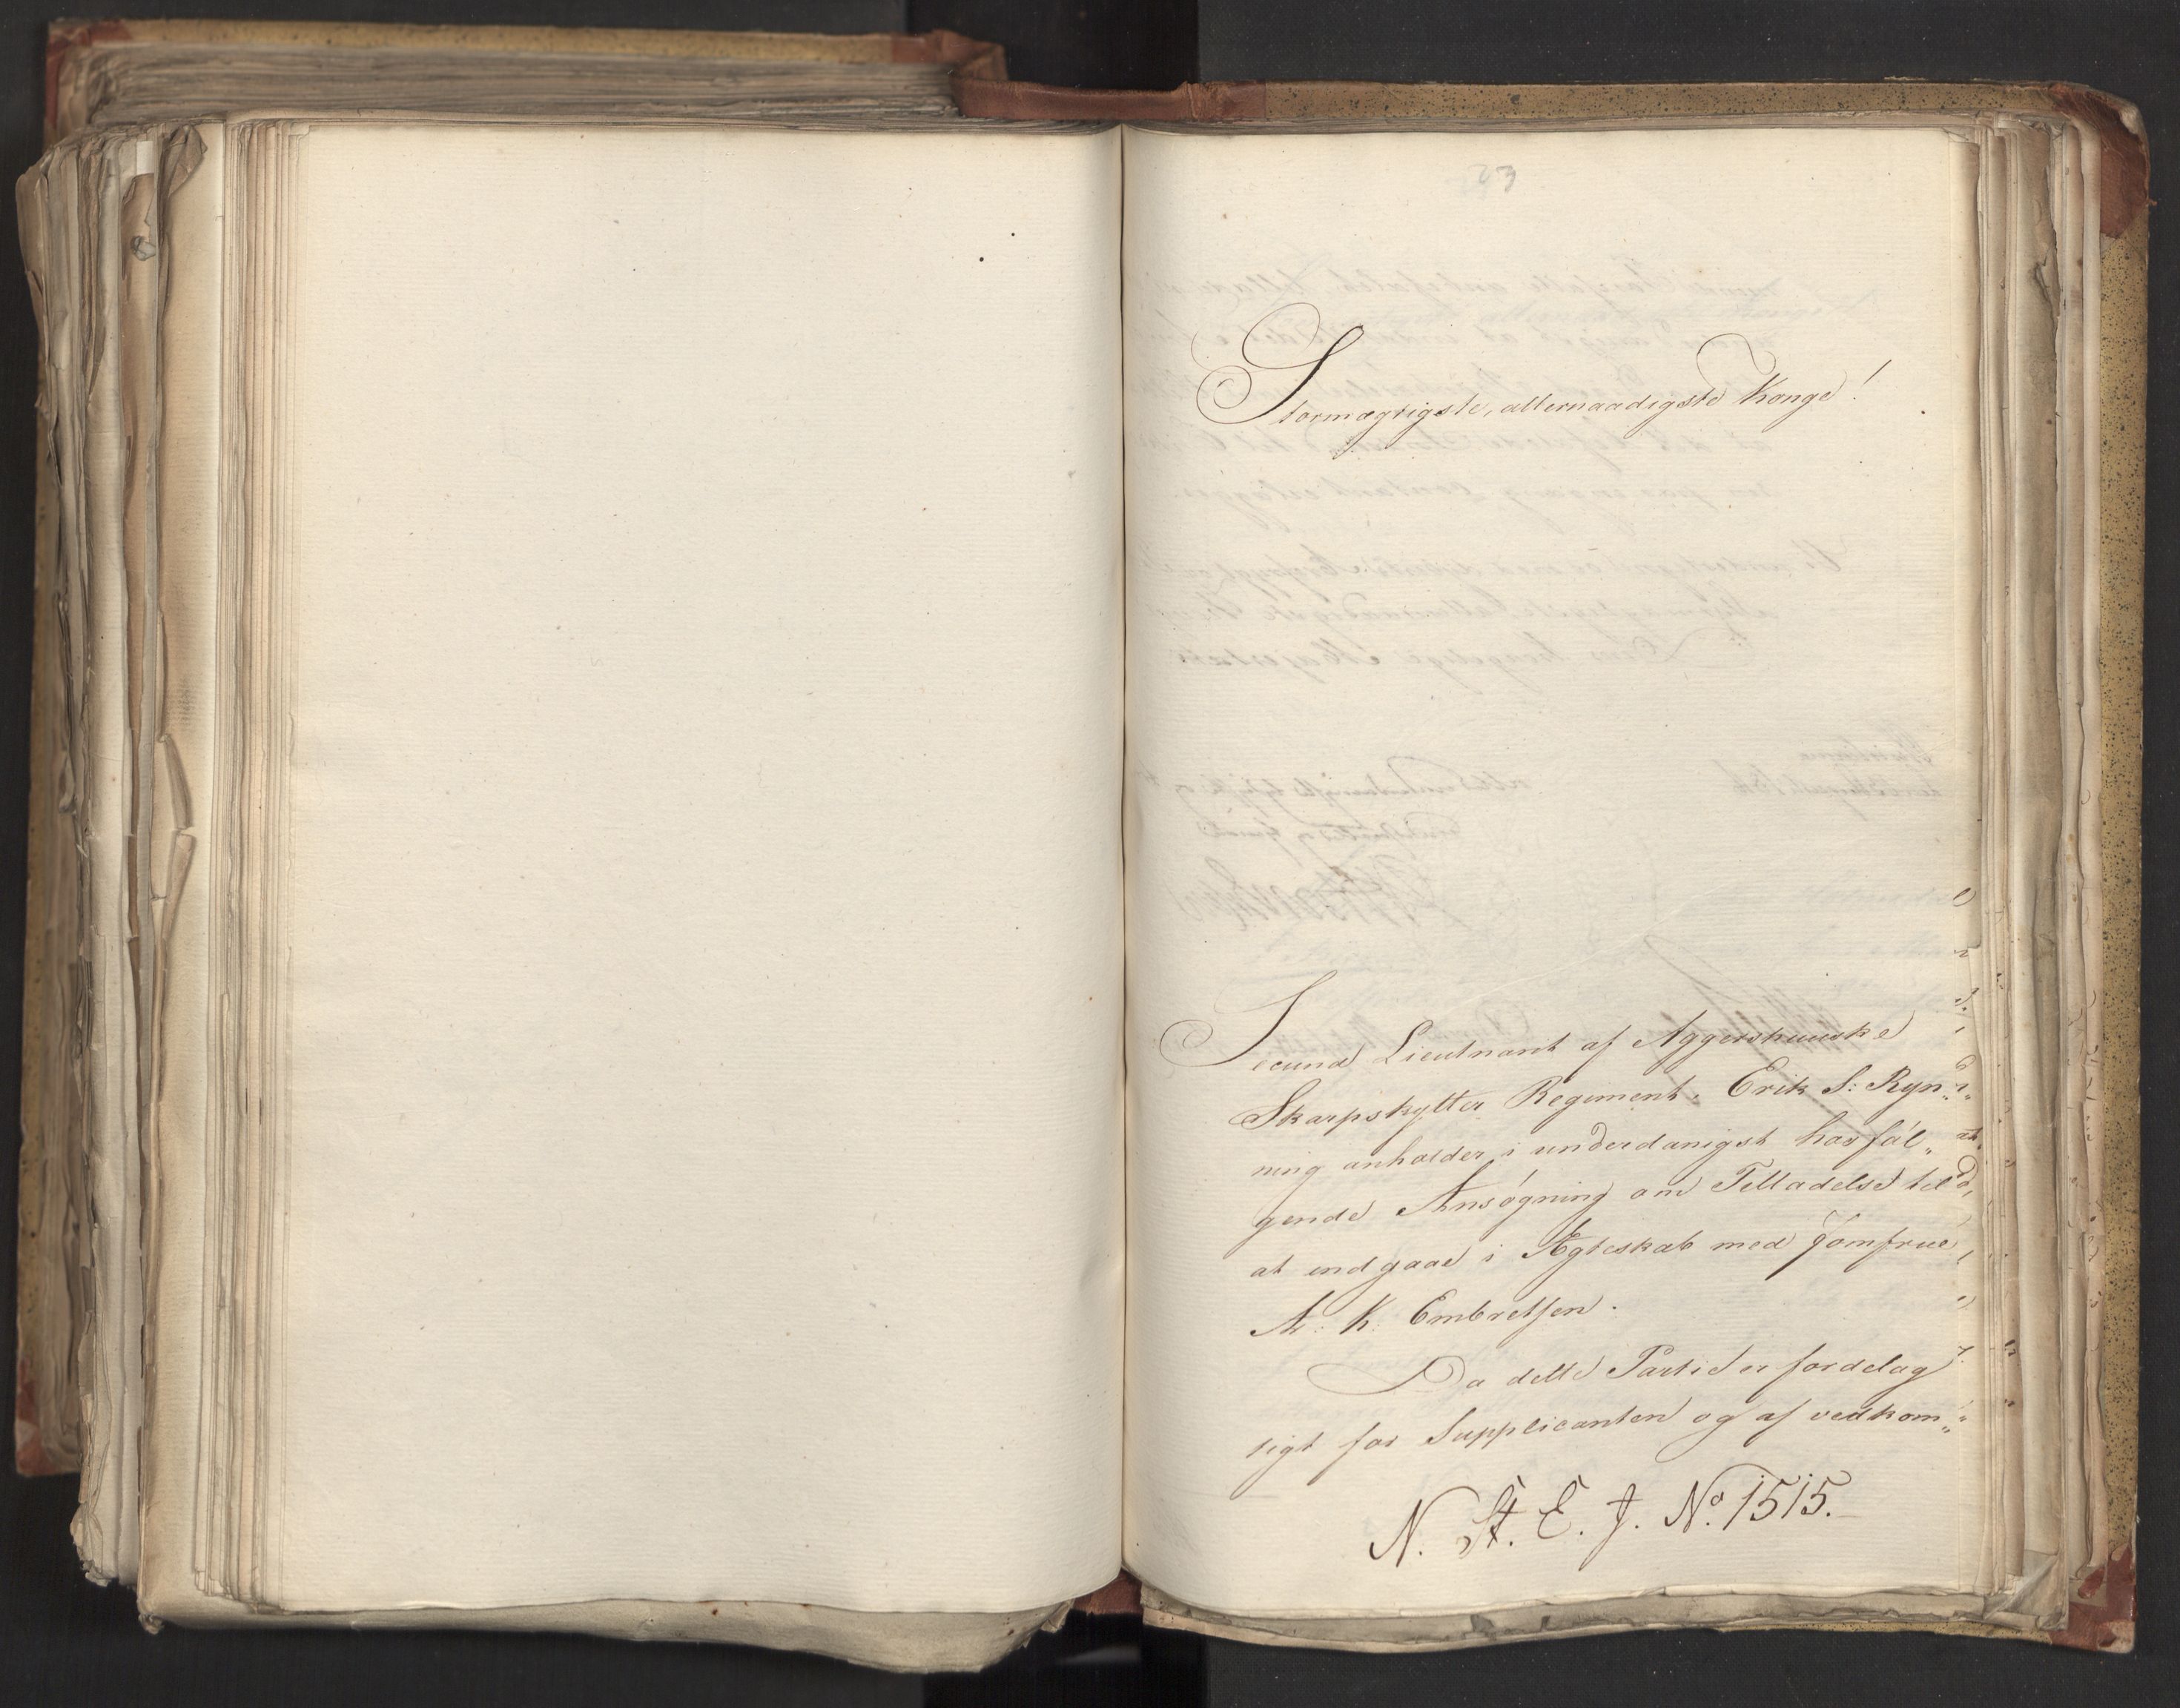 23
Stormægtigste, allernaadigste Konge!
Secund Lieutnant af Aggershuuske
Skarpskytter Regiment, Erik S: Ryn„
ning anholder i underdanigst hosføl„
gende Ansøgning om Tilladelse til
at indgaae i Ægteskab med Jomfrue
A: K: Embretsen.
Da dette Partie er fordelag
tigt for Supplicanten og af vedkom„
N. St. E. J. No. 1515.